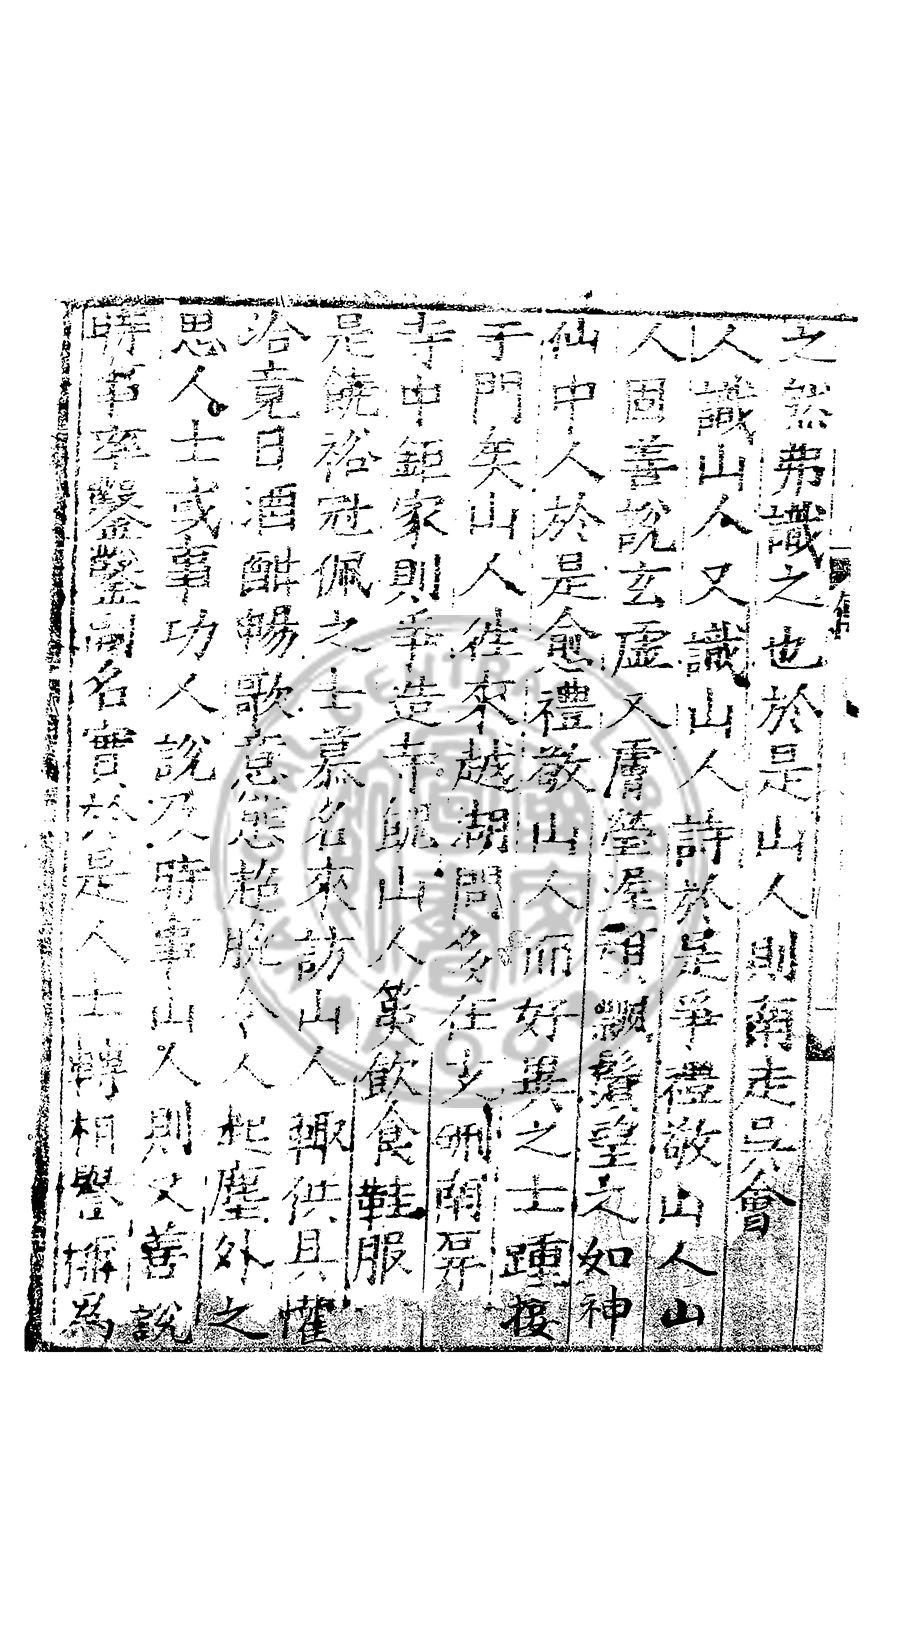 之然弗識之也於是山人則南走吳會
人識山人又識山人詩於是爭禮敬山人山
人固善說玄虛又膚瑩渥頳飄鬚望之如神
仙中人於是愈禮敬山人而好異之士踵接
于門矣山人徃來越湖間多在支硎南屏
寺中鉅家則爭造寺餽山人䇲飲食鞋服
是饒裕冠佩之士慕名來訪山人輙供具懽
洽竟日酒酣暢歌意態超脫令人起塵外之
思人士或事功人說及時事山人則又善說
時事卒鑿鑿副名實於是人士轉相譽擁為